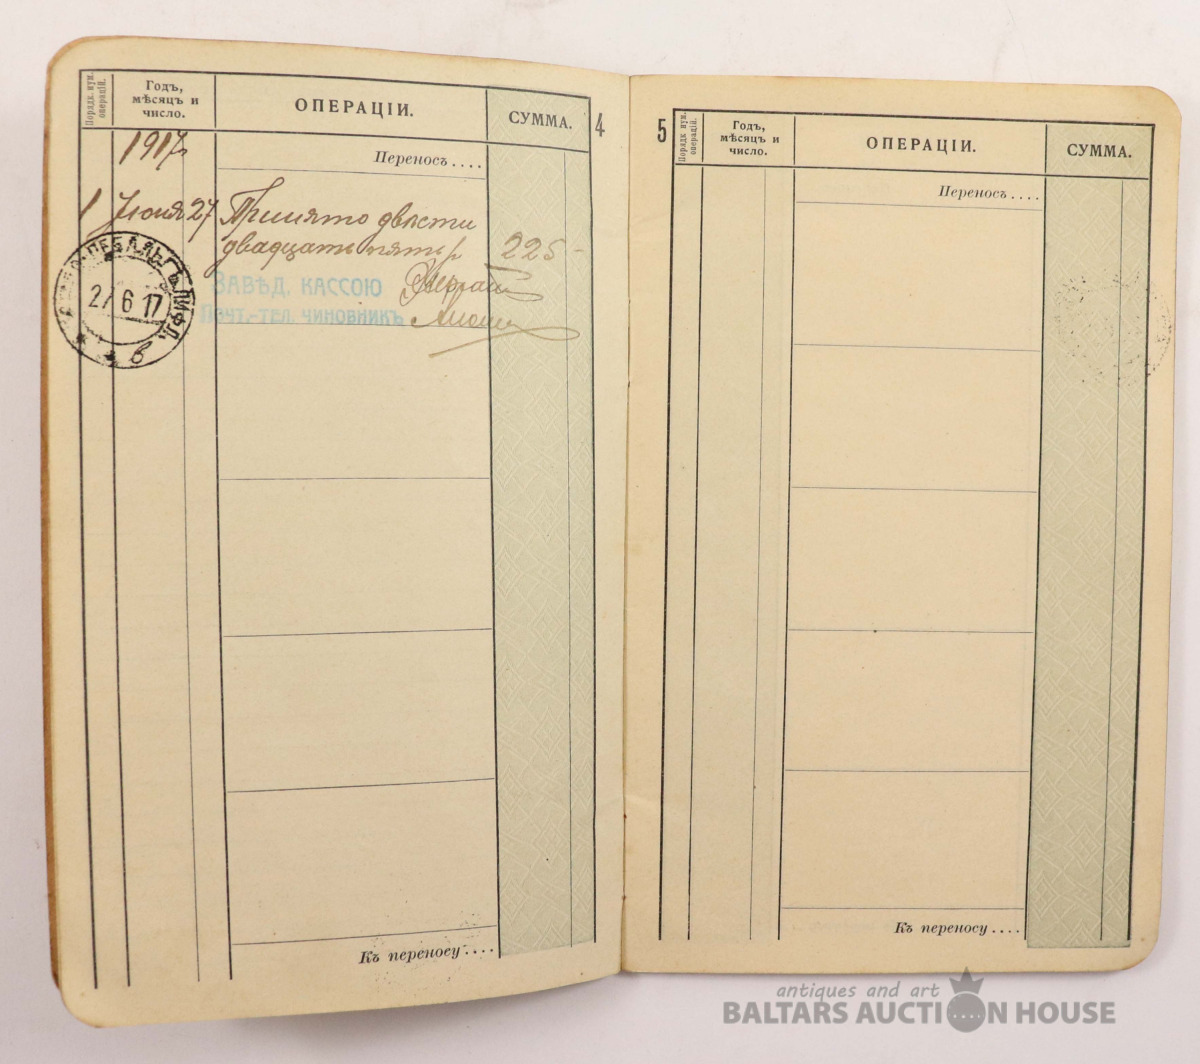 Порядк. нум. операцій.
Годъ, мѣсяцъ и число.
ОПЕРАЦІИ.
СУММА.
4
1917г
Переносъ ....
1 Июня 27 Принято двѣсти
двадцать пять р 225-
ЗАВѢД. КАССОЮ
ПОЧТ.-ТЕЛ. ЧИНОВНИКЪ
27 6 17
ЛИФЛ.
в
Къ переносу ....
5
Порядк. нум. операцій.
Годъ, мѣсяцъ и число.
ОПЕРАЦІИ.
СУММА.
Переносъ ....
Къ переносу ....
antiques and art
BALTARS AUCTION HOUSE